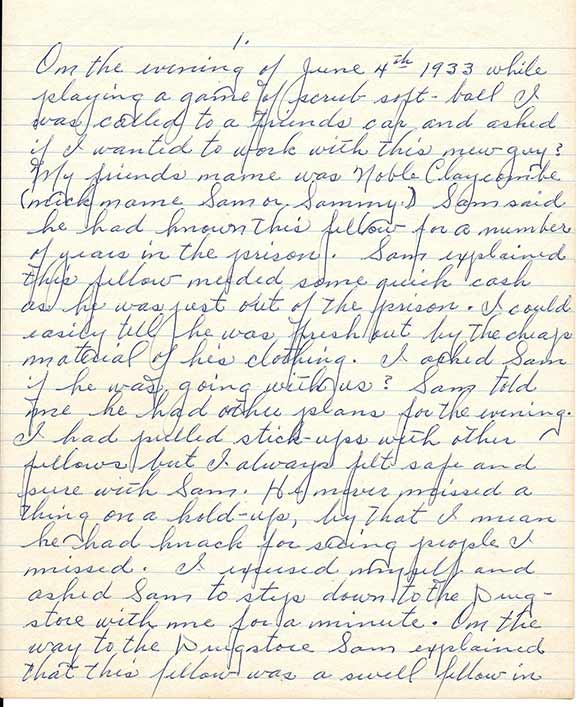 1.
On the evening of June 4th 1933 while
playing a game of scrub soft-ball I
was called to a friends car and asked
if I wanted to work with this new guy?
My friends name was Noble Claycombe
(nick name Sam or Sammy.) Sam said
he had known this fellow for a number
of years in the prison. Sam explained
this fellow needed some quick cash
as he was just out of the prison. I could
easily tell he was fresh out by the cheap
material of his clothing. I asked Sam
if he was going with us? Sam told
me he had other plans for the evening.
I had pulled stick-ups with other
fellows but I always felt safe and
sure with Sam. He never missed a
thing on a hold-up, by that I mean
he had knack for seeing people I
missed. I excused myself and
asked Sam to step down to the Drug-
store with me for a minute. On the
way to the Drugstore Sam explained
that this fellow was a swell fellow in